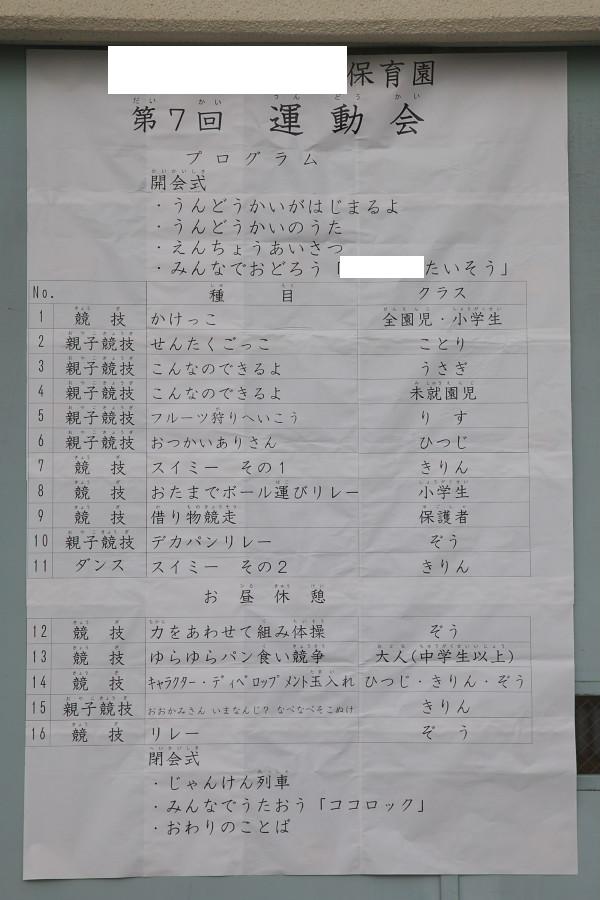 保育園
第7回 運動会
プログラム
開会式
・うんどうかいがはじまるよ
・うんどうかいのうた
・えんちょうあいさつ
・みんなでおどろう「 たいそう」
No. 種目 クラス
1 競技 かけっこ 全園児・小学生
2 親子競技 せんたくごっこ ことり
3 親子競技 こんなのできるよ うさぎ
4 親子競技 こんなのできるよ 未就園児
5 親子競技 フルーツ狩りへいこう りす
6 親子競技 おつかいありさん ひつじ
7 競技 スイミー その1 きりん
8 競技 おたまでボール運びリレー 小学生
9 競技 借り物競走 保護者
10 親子競技 デカパンリレー ぞう
11 ダンス スイミー その2 きりん
お昼休憩
12 競技 力をあわせて組み体操 ぞう
13 競技 ゆらゆらパン食い競争 大人(中学生以上)
14 競技 キャラクター・ディベロップメント玉入れ ひつじ・きりん・ぞう
15 親子競技 おおかみさん いまなんじ? なべなべそこぬけ きりん
16 競技 リレー ぞう
閉会式
・じゃんけん列車
・みんなでうたおう「ココロック」
・おわりのことば